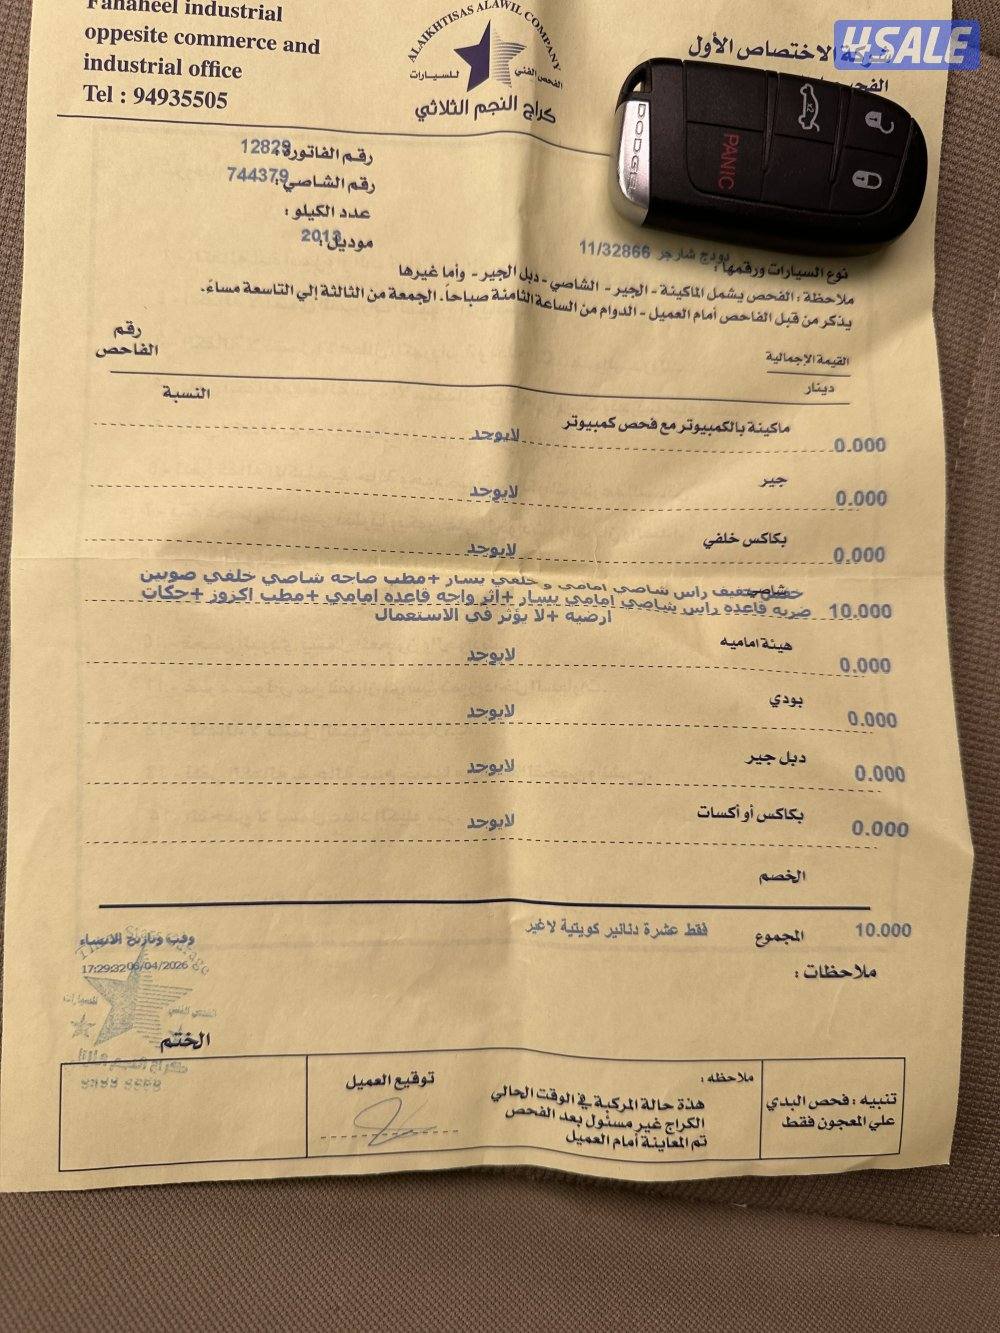 Fahaheel industrial
opposite commerce and
industrial office
Tel : 94935505
ALAIKHTISAS ALAWIL COMPANY
الفحص الفني للسيارات
كراج النجم الثلاثي
شركة الاختصاص الأول
4SALE
DODGE
PANIC
x2
رقم الفاتورة: 12829
رقم الشاصي: 744379
عدد الكيلو :
موديل: 2013
نوع السيارات ورقمها : دودج شارجر 11/32866
ملاحظة : الفحص يشمل الماكينة - الجير - الشاصي - دبل الجير - وأما غيرها
يذكر من قبل الفاحص أمام العميل - الدوام من الساعة الثامنة صباحاً. الجمعة من الثالثة إلي التاسعة مساءً.
القيمة الإجمالية
رقم الفاحص
دينار
النسبة
0.000 ماكينة بالكمبيوتر مع فحص كمبيوتر لايوجد
0.000 جير لايوجد
0.000 بكاكس خلفي لايوجد
شاصي
خفيف راس شاصي امامي و خلفي يسار +مطب صاجه شاصي خلفي صوبين
10.000 ضربه قاعده راس شاصي امامي يسار +اثر واجه قاعده امامي +مطب اكزوز +حكات
ارضيه +لا يؤثر في الاستعمال
0.000 هيئة اماميه لايوجد
0.000 بودي لايوجد
0.000 دبل جير لايوجد
0.000 بكاكس أو أكسات لايوجد
الخصم
10.000 المجموع فقط عشرة دنانير كويتية لاغير
وقت وتاريخ الانشاء
17:29:32 06/04/2026
ملاحظات :
الختم
تنبيه : فحص البدي
علي المعجون فقط
ملاحظه :
هذة حالة المركبة في الوقت الحالي
الكراج غير مسئول بعد الفحص
تم المعاينة أمام العميل
توقيع العميل